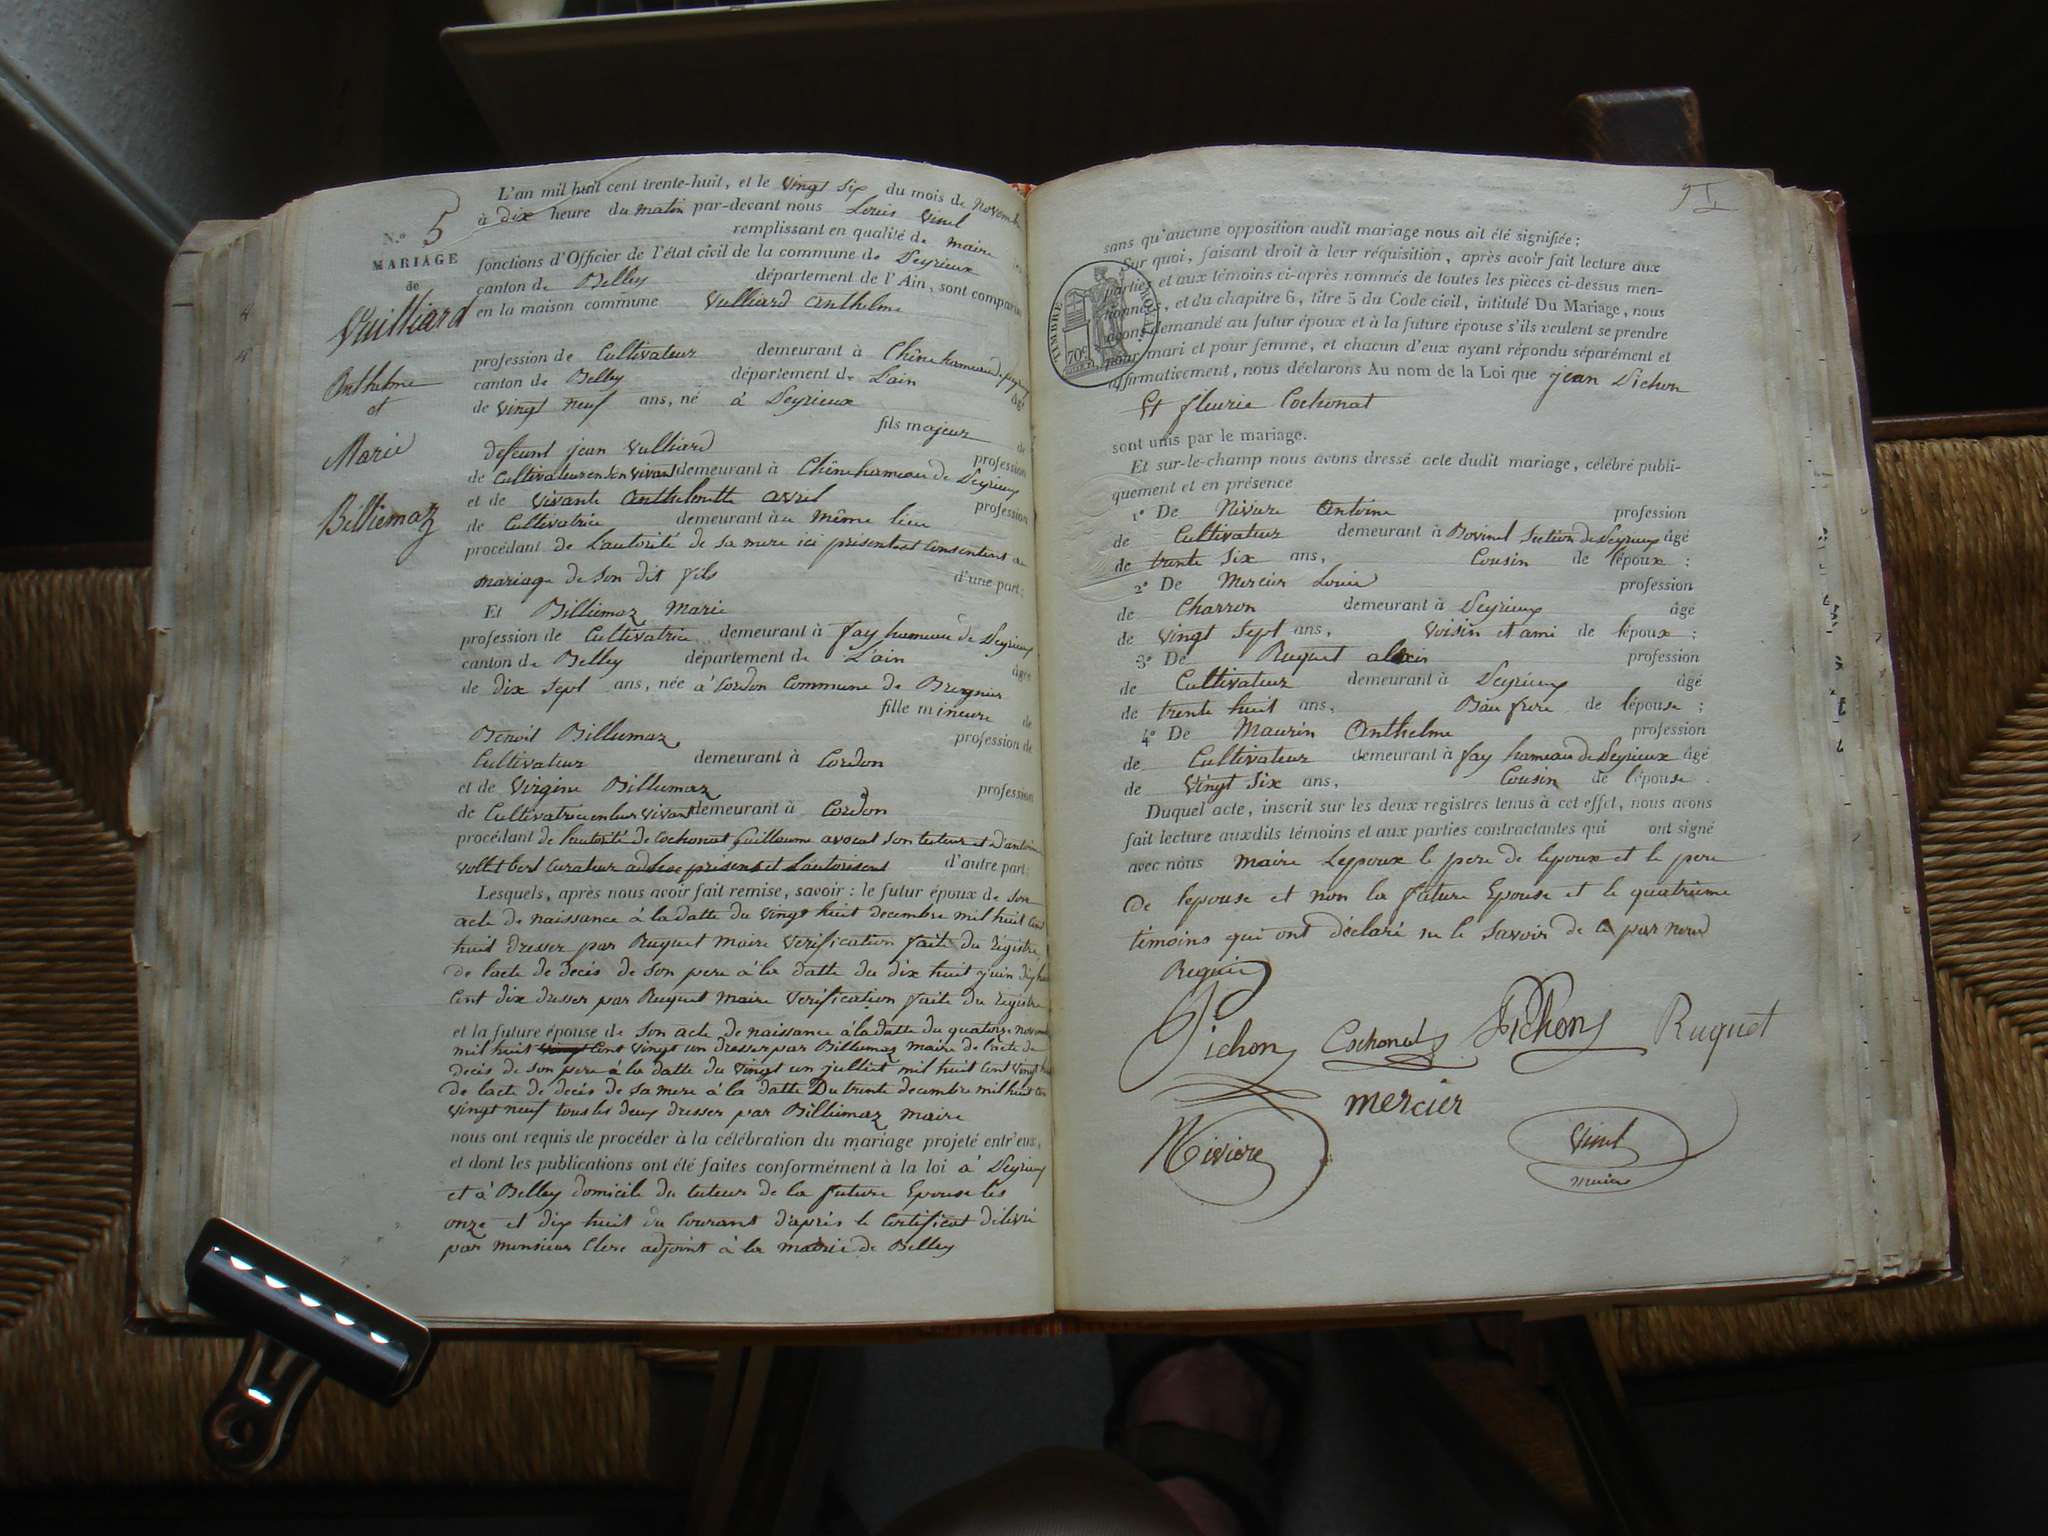 N.° 5
MARIAGE
de
Vuilliard
Anthelme
et
Marie
Billiemaz
L'an mil huit cent trente-huit, et le vingt six du mois de Novembre
à dix heure du matin par-devant nous Louis Vinel
remplissant en qualité de maire
fonctions d'Officier de l'état civil de la commune de Peyrieux
canton de Belley département de l'Ain, sont comparus
en la maison commune Vulliard Anthelme
profession de Cultivateur demeurant à Chêne hameau de Peyrieux
canton de Belley département de Lain âgé
de vingt neuf ans, né à Peyrieux
fils majeur de
defeunt jean Vulliard profession
de Cultivateur en son vivant demeurant à Chêne hameau de Peyrieux
et de vivante Anthelmette avril profession
de Cultivatrice demeurant à u même lieu
procédant de Lautorité de sa mere ici présente et Consentent au
mariage de Son dit fils d'une part;
Et Billiemaz Marie
profession de Cultivatrice demeurant à fay hameau de Peyrieux
canton de Belley département de L'ain âgée
de dix sept ans, née à Cordon Commune de Bregnier
fille mineure de
Benoit Billiemaz profession de
Cultivateur demeurant à Cordon
et de Virgine Billiemaz profession
de Cultivatrice en leur vivant demeurant à Cordon
procédant de lautorité de Cochonat Guilloume avocat Son tuteur et d'antoine
curateur adhoc présent et Lautorisent d'autre part;
Lesquels, après nous avoir fait remise, savoir: le futur époux de son
acte de naissance à la datte du vingt huit decembre mil huit Cent
huit dresser par Ruquet maire Verification faite du Régistre
de lacte de decés de son pere à la datte du dix huit juin dix huit
Cent dix dresser par Ruquet maire Verification faite du Registre
et la future épouse de Son acte de naissance à la datte du quatorze novembre
mil huit vingt Cent vingt un dresser par Billiemaz maire de lacte de
decés de son pere à la datte du vingt un julliet mil huit Cent vingt huit
de lacte de decés de sa mere à la datte Du trente decembre mil huit Cent
vingt neuf tous les deux dresser par Billiemaz maire
nous ont requis de procéder à la célébration du mariage projeté entr'eux,
et dont les publications ont été faites conformément à la loi à Peyrieux
et à Belley domicile du tuteur de la future Epouse les
onze et dix huit du Courant d'après le Certificat délivré
par monsieur Clerc adjoint à la mairie de Belley
TIMBRE ROYAL
70c
sans qu'aucune opposition audit mariage nous ait été signifiée;
Sur quoi, faisant droit à leur réquisition, après avoir fait lecture aux
parties et aux témoins ci-après nommés de toutes les pièces ci-dessus men-
tionnées, et du chapitre 6, titre 5 du Code civil, intitulé Du Mariage, nous
avons demandé au futur époux et à la future épouse s'ils veulent se prendre
pour mari et pour femme, et chacun d'eux ayant répondu séparément et
affirmativement, nous déclarons Au nom de la Loi que jean Pichon
Et fleurie Cochonat
sont unis par le mariage.
Et sur-le-champ nous avons dressé acte dudit mariage, célébré publi-
quement et en présence
1° De Riviere Antoine profession
de Cultivateur demeurant à Bovinel Section de Peyrieux âgé
de trente six ans, Cousin de l'époux;
2° De Mercier Louis profession
de Charron demeurant à Peyrieux âgé
de vingt sept ans, voisin et ami de l'époux;
3° De Ruquet alexis profession
de Cultivateur demeurant à Peyrieux âgé
de trente huit ans, Bau frere de l'épouse;
4° De Maurin Anthelme profession
de Cultivateur demeurant à fay hameau de Peyrieux âgé
de vingt six ans, Cousin de l'épouse.
Duquel acte, inscrit sur les deux registres tenus à cet effet, nous avons
fait lecture auxdits témoins et aux parties contractantes qui ont signé
avec nous maire Lepoux le pere de lepoux et le pere
de lepouse et non la future Epouse et le quatrieme
témoins qui ont déclaré ne le Savoir de a par nous
Requis
Pichon Cochonat Pichon Ruquet
mercier
Riviere Vinel
maire